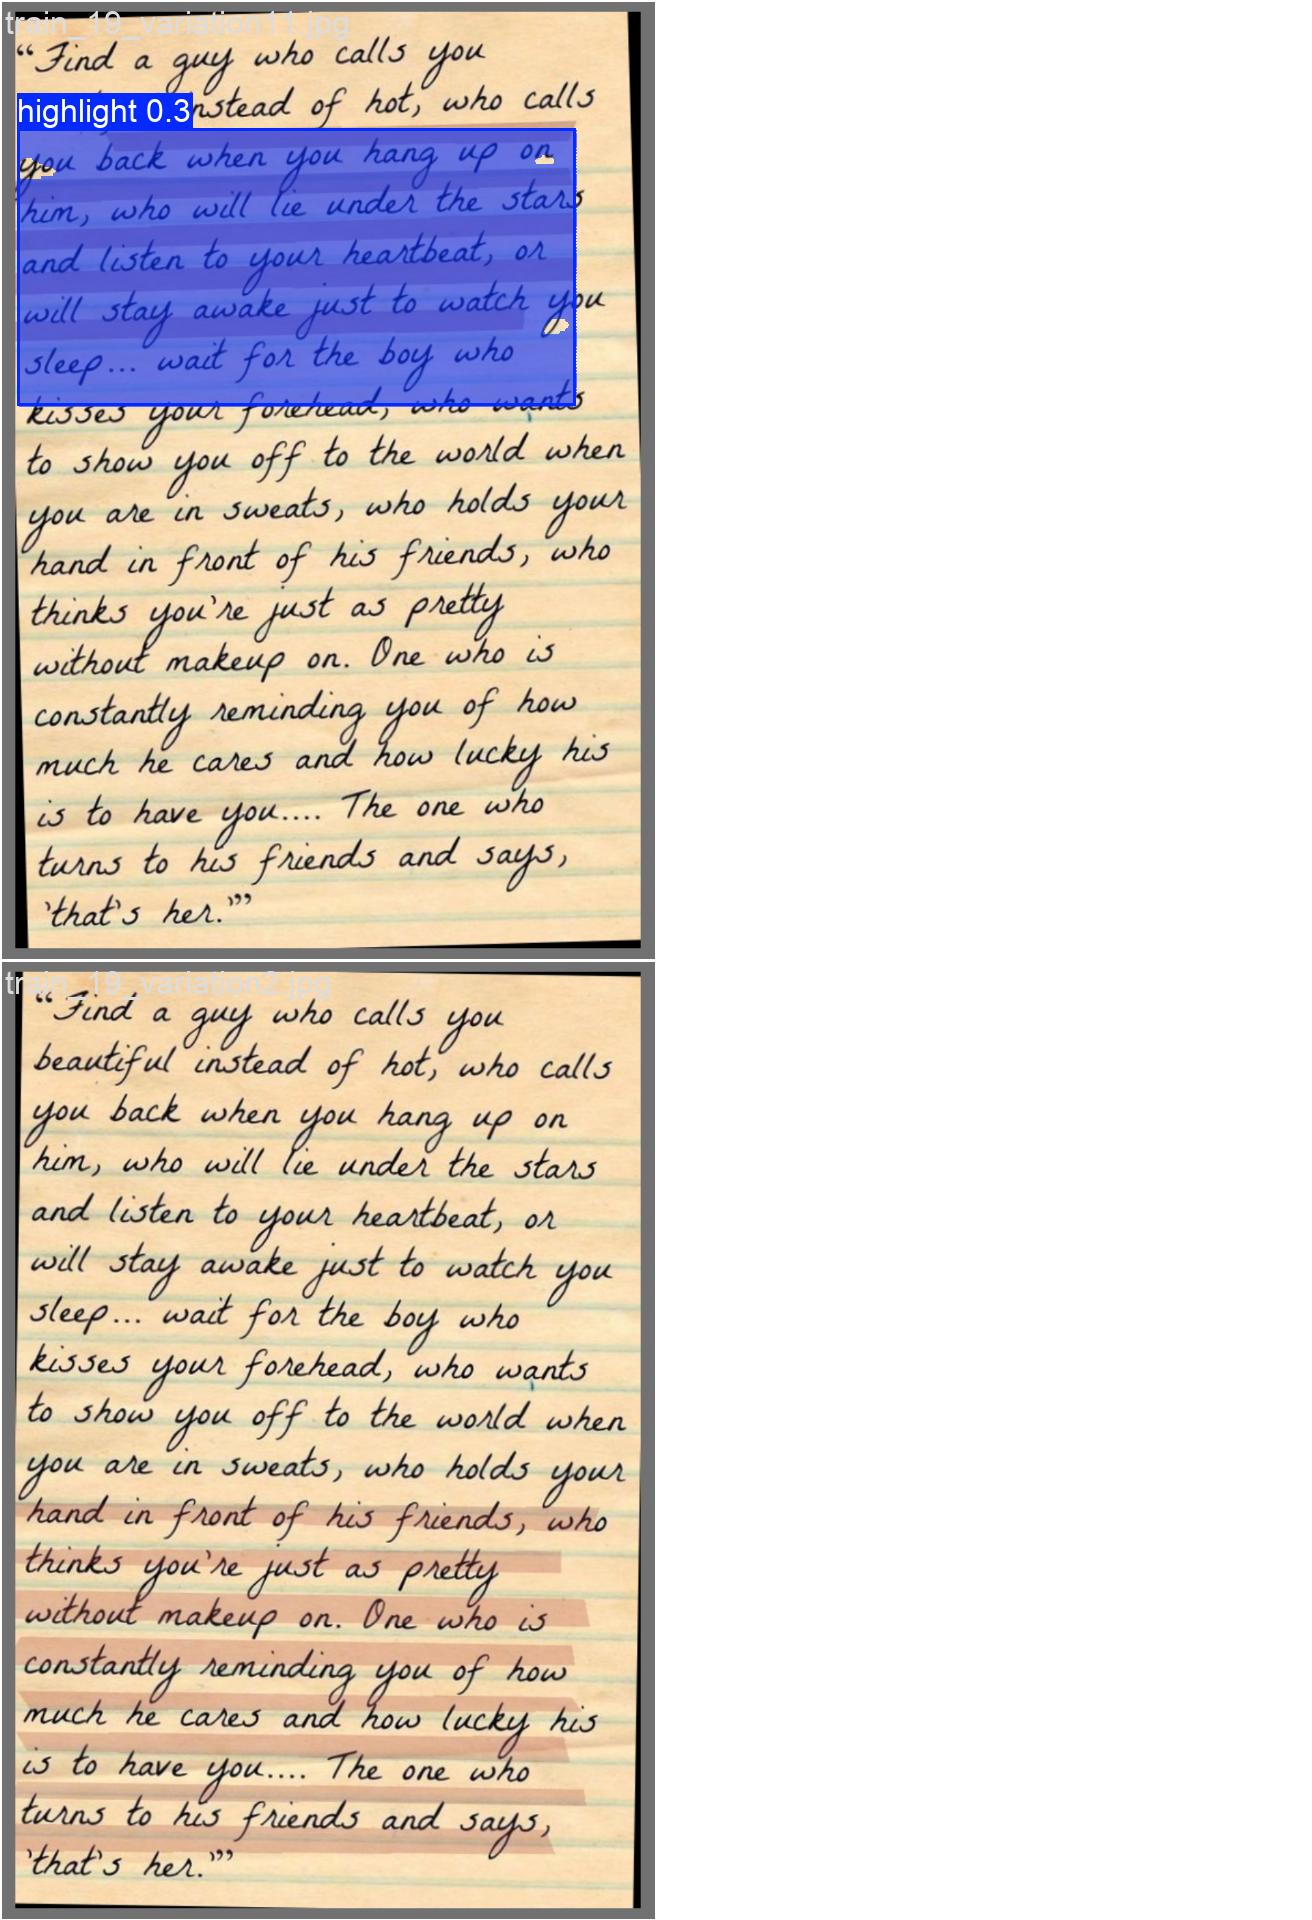 train_19_variation11.jpg
“Find a guy who calls you
highlight 0.3
instead of hot, who calls
you back when you hang up on
him, who will lie under the stars
and listen to your heartbeat, or
will stay awake just to watch you
sleep... wait for the boy who
kisses your forehead, who wants
to show you off to the world when
you are in sweats, who holds your
hand in front of his friends, who
thinks you're just as pretty
without makeup on. One who is
constantly reminding you of how
much he cares and how lucky his
is to have you.... The one who
turns to his friends and says,
'that's her.'”
train_19_variation2.jpg
“Find a guy who calls you
beautiful instead of hot, who calls
you back when you hang up on
him, who will lie under the stars
and listen to your heartbeat, or
will stay awake just to watch you
sleep... wait for the boy who
kisses your forehead, who wants
to show you off to the world when
you are in sweats, who holds your
hand in front of his friends, who
thinks you're just as pretty
without makeup on. One who is
constantly reminding you of how
much he cares and how lucky his
is to have you.... The one who
turns to his friends and says,
'that's her.'”